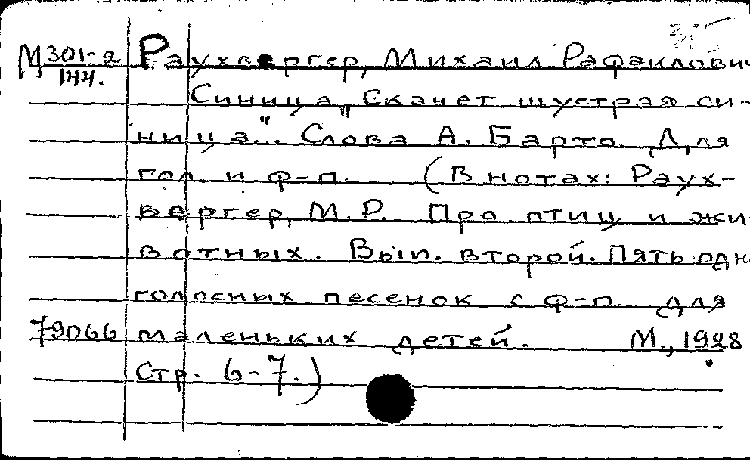 М 301-2 Раухвергер, Михаил Рафаилович
144.
Синица „Скачет шустрая си-
ница". Слова А. Барто. Для
гол. и ф-п. (В нотах: Раух-
вергер, М.Р. Про птиц и жи-
вотных. Вып. второй. Пять одно
голосных песенок с ф-п. для
79066 маленьких детей. М., 1928
Стр. 6-7.)